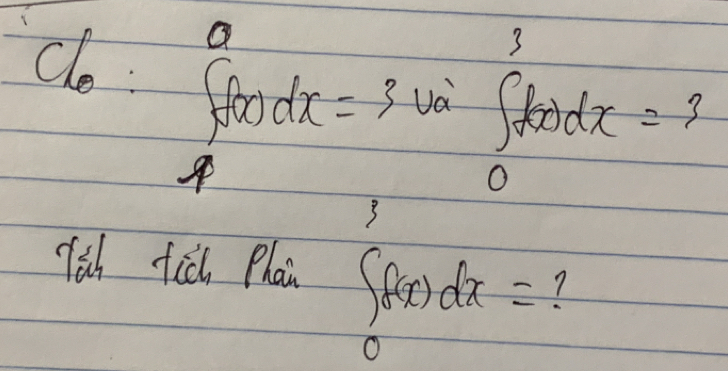 Cho : ∫f(x)dx = 3 và ∫₀³ f(x)dx = 3
Tính tích phân ∫₀³ f(x)dx = ?